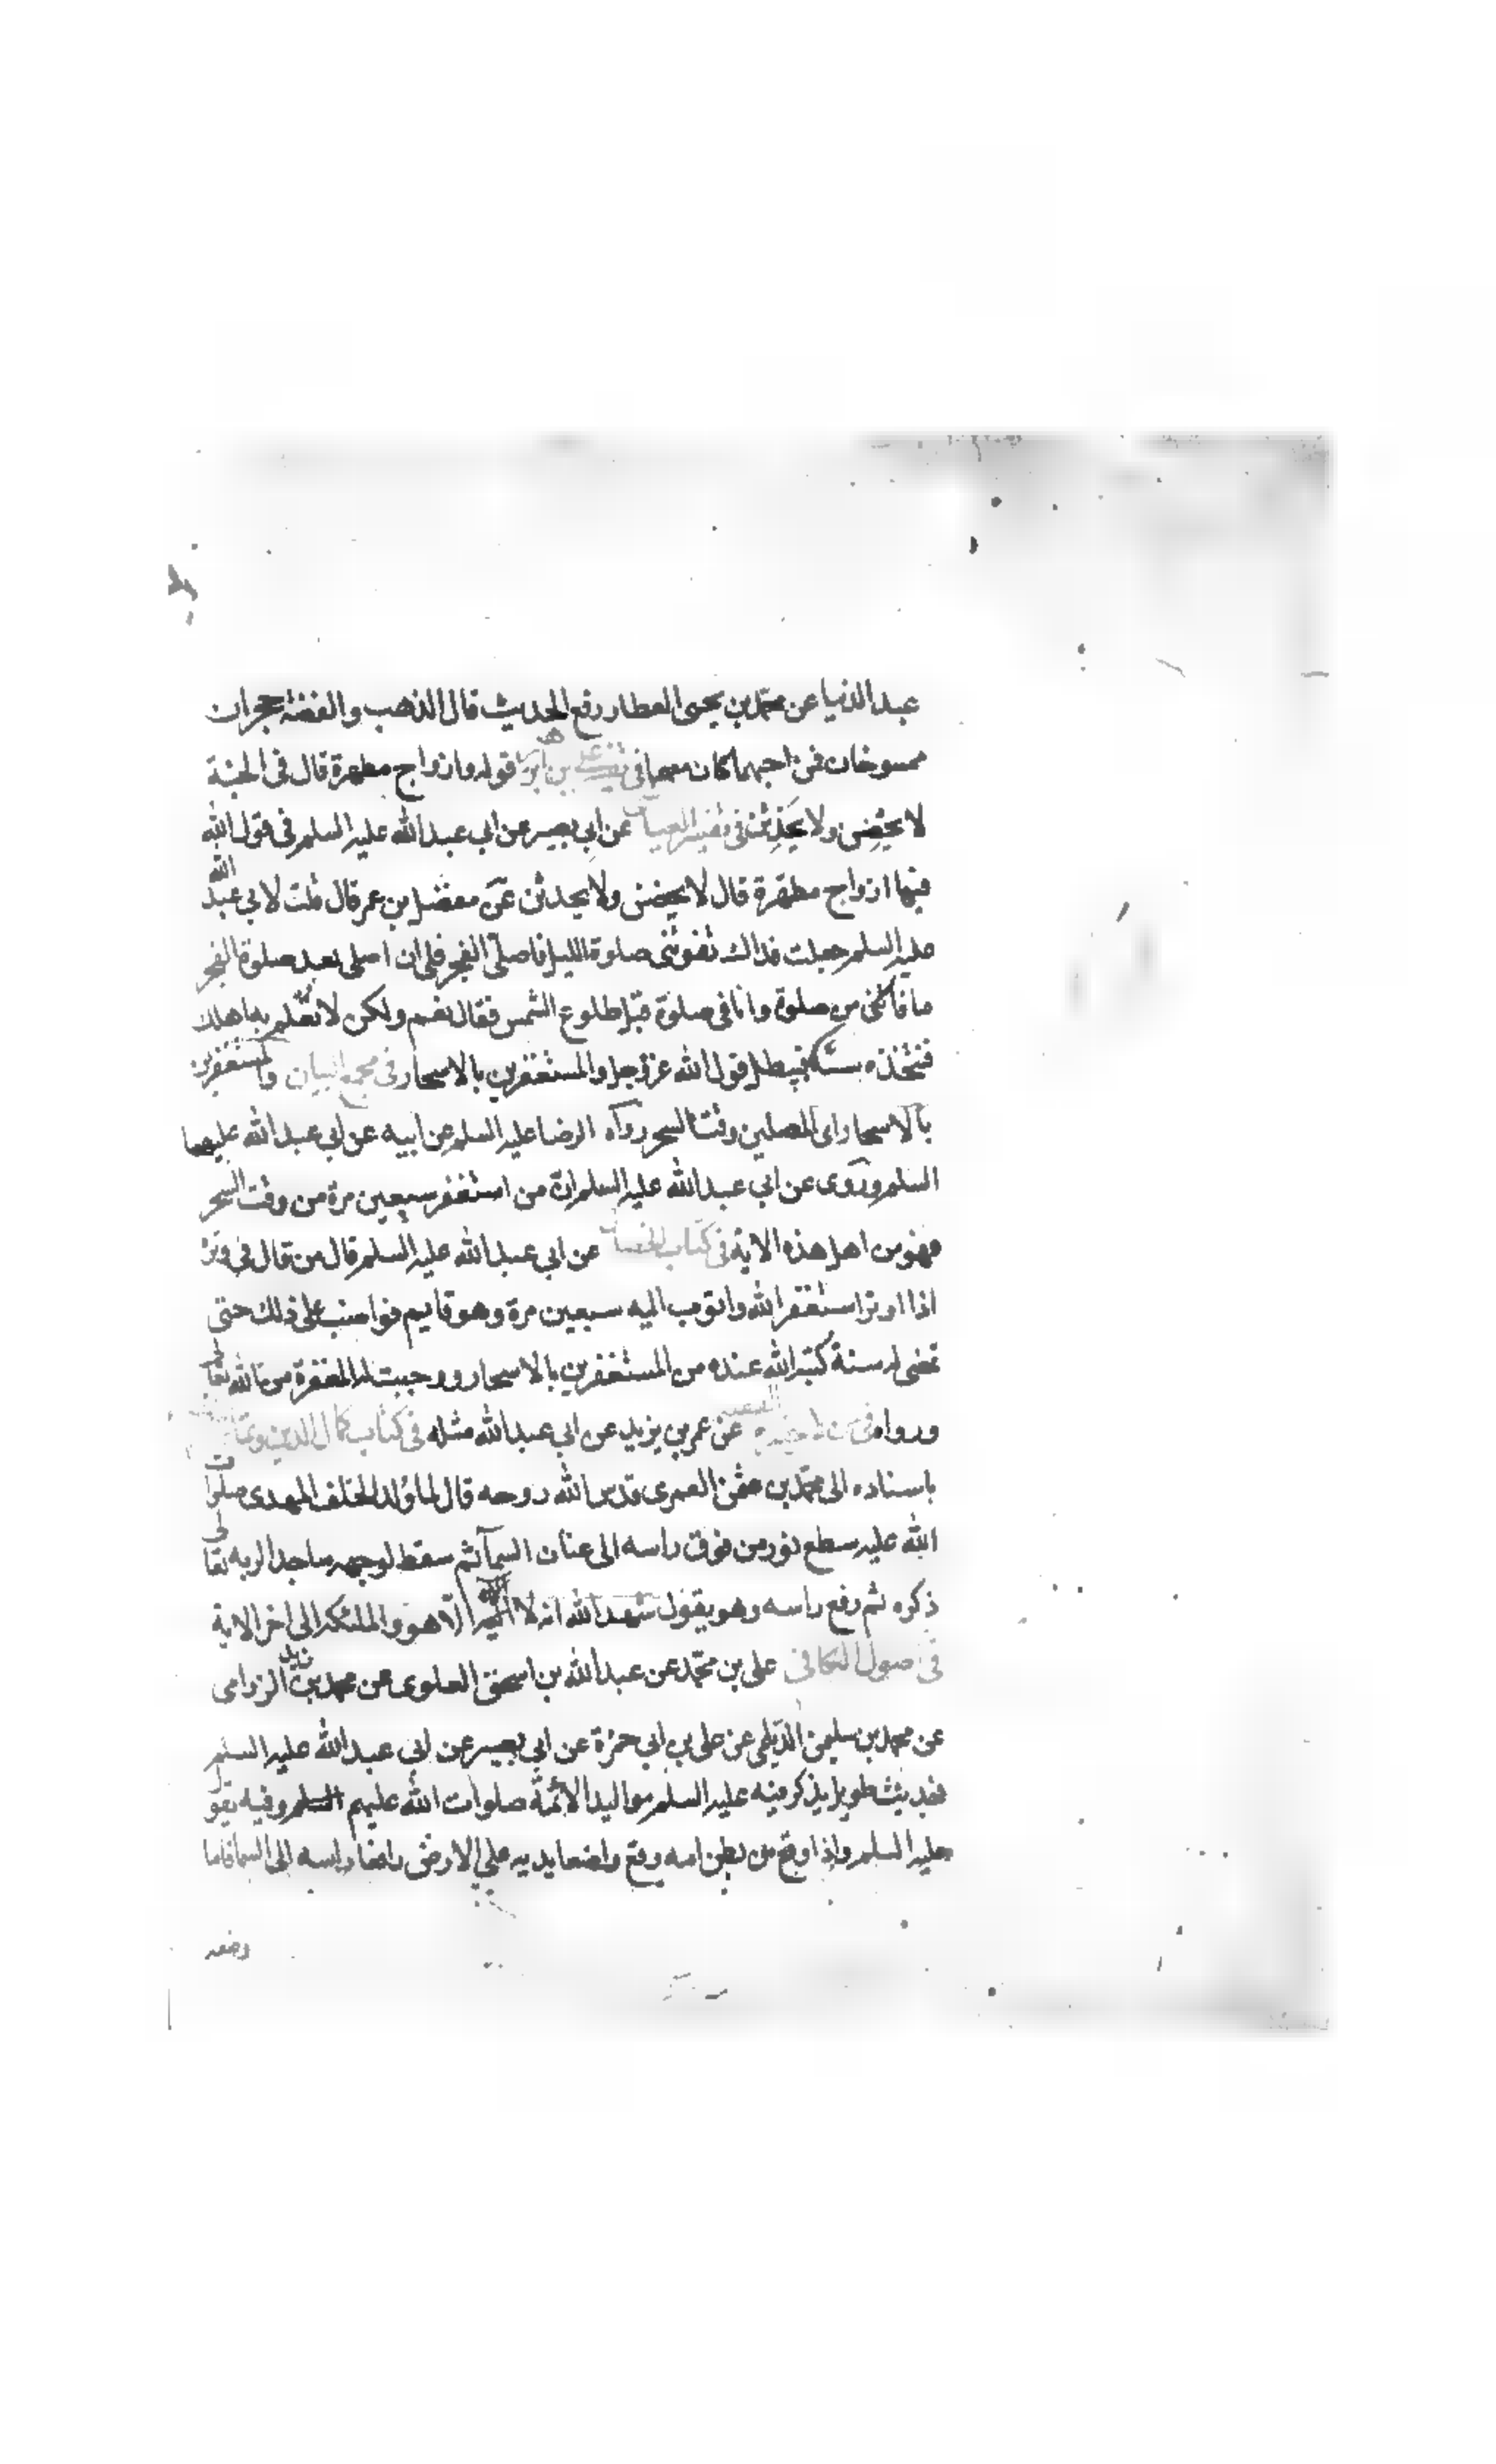 عبد الدنيا عن محمد بن يحيى العطار رفع الحديث قال الذهب والفضة حجران
ممسوخان فمن احبهما كان معهما في تفسير علي بن ابرهيم قوله وازواج مطهرة قال في الجنة
لا يحضن ولا يحدثن في تفسير العياشي عن ابي بصير عن ابي عبد الله عليه السلم في قول الله
فيها ازواج مطهرة قال لا يحضن ولا يحدثن عن مفضل بن عمر قال قلت لابي عبد الله
عليه السلم جعلت فداك تفوتني صلوة الليل فاصلي الفجر فلي ان اصلي بعد صلوة الفجر
ما فاتني من صلوة وانا في صلوة قبل طلوع الشمس فقال نعم ولكن لا تعلم به اهلك
فتتخذه سنة فيبطل قول الله عز وجل والمستغفرين بالاسحار في مجمع البيان والمستغفرين
بالاسحار اى المصلين وقت السحر رواه الرضا عليه السلم عن ابيه عن ابي عبد الله عليهما
السلم وروى عن ابي عبد الله عليه السلم ان من استغفر سبعين مرة من وقت السحر
فهو من اهل هذه الاية في كتاب الخصال عن ابي عبد الله عليه السلم قال من قال في وتره
اذا اوتر استغفر الله واتوب اليه سبعين مرة وهو قايم فواضب على ذلك حتى
تمضى له سنة كتبه الله عنده من المستغفرين بالاسحار ووجبت له المغفرة من الله تعالى
ورواه في من لا يحضره الفقيه عن عمر بن يزيد عن ابي عبد الله مثله في كتاب كمال الدين وتمام
باسناده الى محمد بن عثمن العمرى قدس الله روحه قال لما ولد الخلف المهدى صلوات
الله عليه سطع نور من فوق راسه الى عنان السمآ ثم سقط لوجهه ساجدا لربه تعالى
ذكره ثم رفع راسه وهو يقول شهد الله انه لا اله الا هو والملئكة الى اخر الاية
في اصول الكافي علي بن محمد عن عبد الله بن اسحق العلوى عن محمد بن زيد الرزامى
عن محمد بن سليمن الديلمي عن علي بن ابي حمزة عن ابي بصير عن ابي عبد الله عليه السلم
في حديث طويل يذكر فيه عليه السلم مواليد الائمة صلوات الله عليهم وفيه يقول
عليه السلم واذا وقع من بطن امه وقع واضعا يديه على الارض رافعا راسه الى السما فاما
وضعه